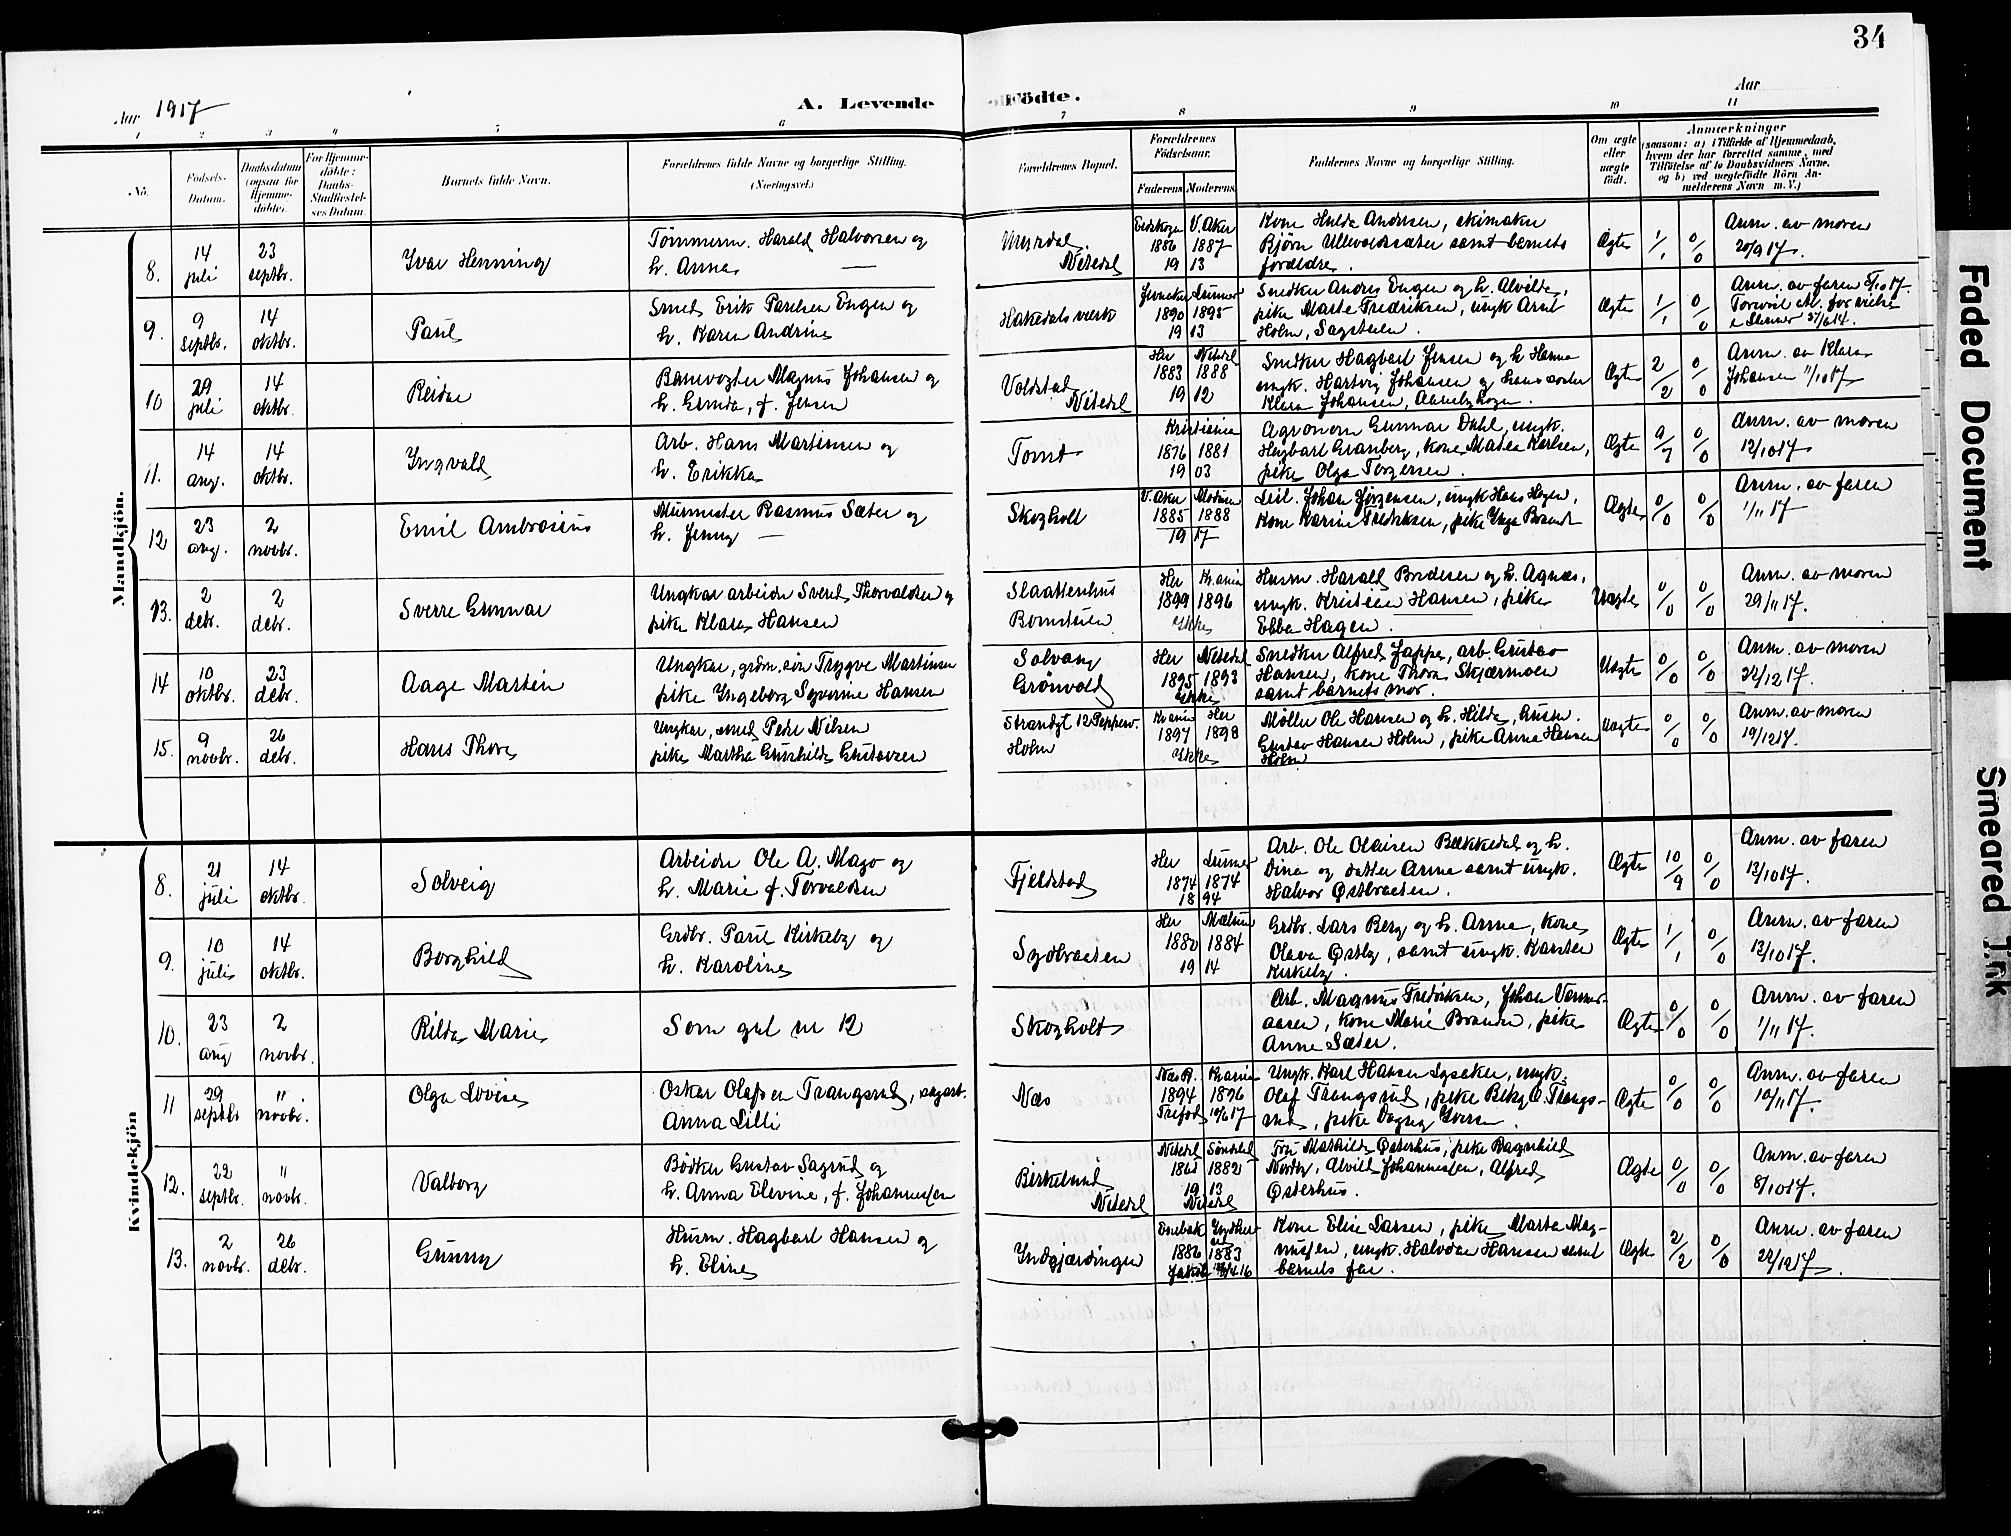 34
Aar 1917
A. Levende Födte.
Aar
1 2 3 4 5 6 7 8 9 10 11
No.
Födsels-Datum.
Daabsdatum (ogsaa for Hjemmedöbte).
For Hjemmedöbte: Daabs-Stadfæstelses Datum
Barnets fulde Navn.
Forældrenes fulde Navne og borgerlige Stilling. (Næringsvei.)
Forældrenes Bopæl.
Forældrenes Födselsaar.
Faderens Moderens
Faddernes Navne og borgerlige Stilling.
Om ægte eller uægte født.
Anmærkninger
(saasom: a) i Tilfælde af Hjemmedaab,
hvem der har forrettet samme, med
Tilföielse af to Daabsvidners Navne,
og b) ved uægtefödte Börn An-
melderens Navn m. V.)
Mandkjön.
8. 14 juli 23 septbr. Ivar Henning
Tømmerm. Harald Halvorsen og
h. Anna
Nitedal
V. Aker
1886 1887
19 13
Kone Hulda Andersen, skimaker
Bjørn Ullevoldsæter samt barnets
foreldre.
Ægte 1/1 0/0
Anm. av moren
20/9 17.
9. 9 septbr. 14 oktbr. Paul
Smed Erik Paulsen Engen og
h. Karen Andrine
Hakedals værk
Jevnaker Lunner
1890 1895
19 13
Snedker Anders Engen og h. Alvilde,
pike Marte Fredriksen, ungk Arnt
Holm, Sagstuen.
Ægte 1/1 0/0
Anm. av faren 5/10 17.
10 29 juli 14 oktbr. Reidar
Banevogter Magnus Johansen og
h. Gunda, f. Jensen
Voldstad
Nitedal
Her Nitedal
1883 1888
19 12
Snedker Hagbart Jensen og h Hanna
ungk. Hartvig Johansen og hans søster
Klara Johansen, Aanebyhagen.
Ægte 2/2 0/0
Anm. av Klara
Johansen 11/10 17
11. 14 aug. 14 oktbr. Yngvald
Arb. Hans Martinsen og
h. Erikka
Tomt
Kristiania
1876 1881
19 03
Agronom Gunnar Dahl, ungk.
Hagbart Granberg, kone Matea Karlsen,
pike Olga Torgersen.
Ægte 9/7 0/0
Anm. av moren
12/10 17
12 23 aug. 2 novbr. Emil Ambrosius
Murmester Rasmus Sæter og
h. Jenny
Skogholt
V. Aker Modum
1885 1888
19 17
Johan Jørgensen, ungk Hans Hagen,
kone Karine Fredriksen, pike Inga Brandt
Ægte 0/0 0/0
Anm. av faren
1/11 17
13. 2 debr. 2 debr. Sverre Gunnar
Ungkar arbeider Sverd Thorvaldsen og
pike Klara Hansen
Slaattenhus
Bomstuen
Her Kr.ania
1899 1896
Ikke
Husm. Harald Bredesen og h. Agnes,
ungk. Kristian Hansen, pike
Ebba Hagen.
Uægte 0/0 0/0
Anm. av moren
29/11 17.
14 10 oktbr. 23 debr. Aage Martin
Ungkar, grdm. søn Trygve Martinsen
pike Ingeborg Syverine Hansen
Solvang
Grønvold
Her Nitedal
1895 1893
Ikke
Snedker Alfred Jappe, arb. Gustav
Hansen, kone Thora Skjærmoen
samt barnets mor.
Uægte 0/0 0/0
Anm. av moren
22/12 17.
15. 9 novbr. 26 debr. Hans Thore
Ungkar, smed Peder Nilsen
pike Martha Gunhilde Gustavsen
Strandgt 12 Pepperv.
Holm
Kr.ania Her
1897 1898
Ikke
Møller Ole Hansen og h. Hilda, Husm.
Gustav Hansen Holm, pike Anna Hansen
Holm
Uægte 0/0 0/0
Anm. av moren
19/12 17.
Kvindekjön
8. 21 juli 14 oktbr. Solveig
Arbeider Ole A. Mago og
h. Marie f. Torvaldsen
Fjeldstad
Her Lunner
1874 1874
18 94
Arb. Ole Olaisen Bækkedal og h.
Dina og datter Anna samt ungk.
Halvor Østbraaten.
Ægte 10/9 0/0
Anm. av faren
13/10 17.
9. 10 juli 14 oktbr. Borghild
Grdbr. Paul Kirkeby og
h. Karoline
Sydbraaten
Her
1880 1884
19 14
Grdbr. Lars Berg og h. Anna, kone
Olava Østby, samt ungk. Karsten
Kirkeby.
Ægte 1/1 0/0
Anm. av faren
13/10 17.
10. 23 aug 2 novbr. Rilda Marie
Som gut nr 12
Skogholt
Arb. Magnus Fredriksen, Johan
kone Marie Branden, pike
Anna Sæter.
Ægte 0/0 0/0
Anm. av faren
1/11 17.
11 29 septbr " novbr. Olga Lovise
Oskar Olafsen Trangsrud, sagarb.
Anna Lilli
Næs
Næs R. Kr.ania
1894 1896
10/6 17
Ungk. Karl Hansen Lysaker, ungk.
Olaf Trangsrud, pike Beby O. Trangs-
rud, pike Dagny Iversen.
Ægte 0/0 0/0
Anm. av faren
10/11 17.
12. 22 septbr. " novbr. Valborg
Bødker Gustav Sagrud og
h. Anna Elevine, f. Johannesen
Birkelund
Nitedal
Nitedal
1882
19 13
Nitedal
Fru Mathilde Østerhus, pike Ragnhild
Nordby, Alvild Johannesen, Alfred
Østerhus.
Ægte 0/0 0/0
Anm. av faren
8/10 17.
13. 2 novbr. 26 debr. Gunny
Husm. Hagbart Hansen og
h. Eline
Indgjærdingen
Enebak
1886 1883
Kone Elise Larsen, pike Marta Mag-
nussen, ungk. Halvdan Hansen samt
barnets far.
Ægte 2/2 0/0
Anm. av faren
22/12 17.
Faded Document
Smeared Ink